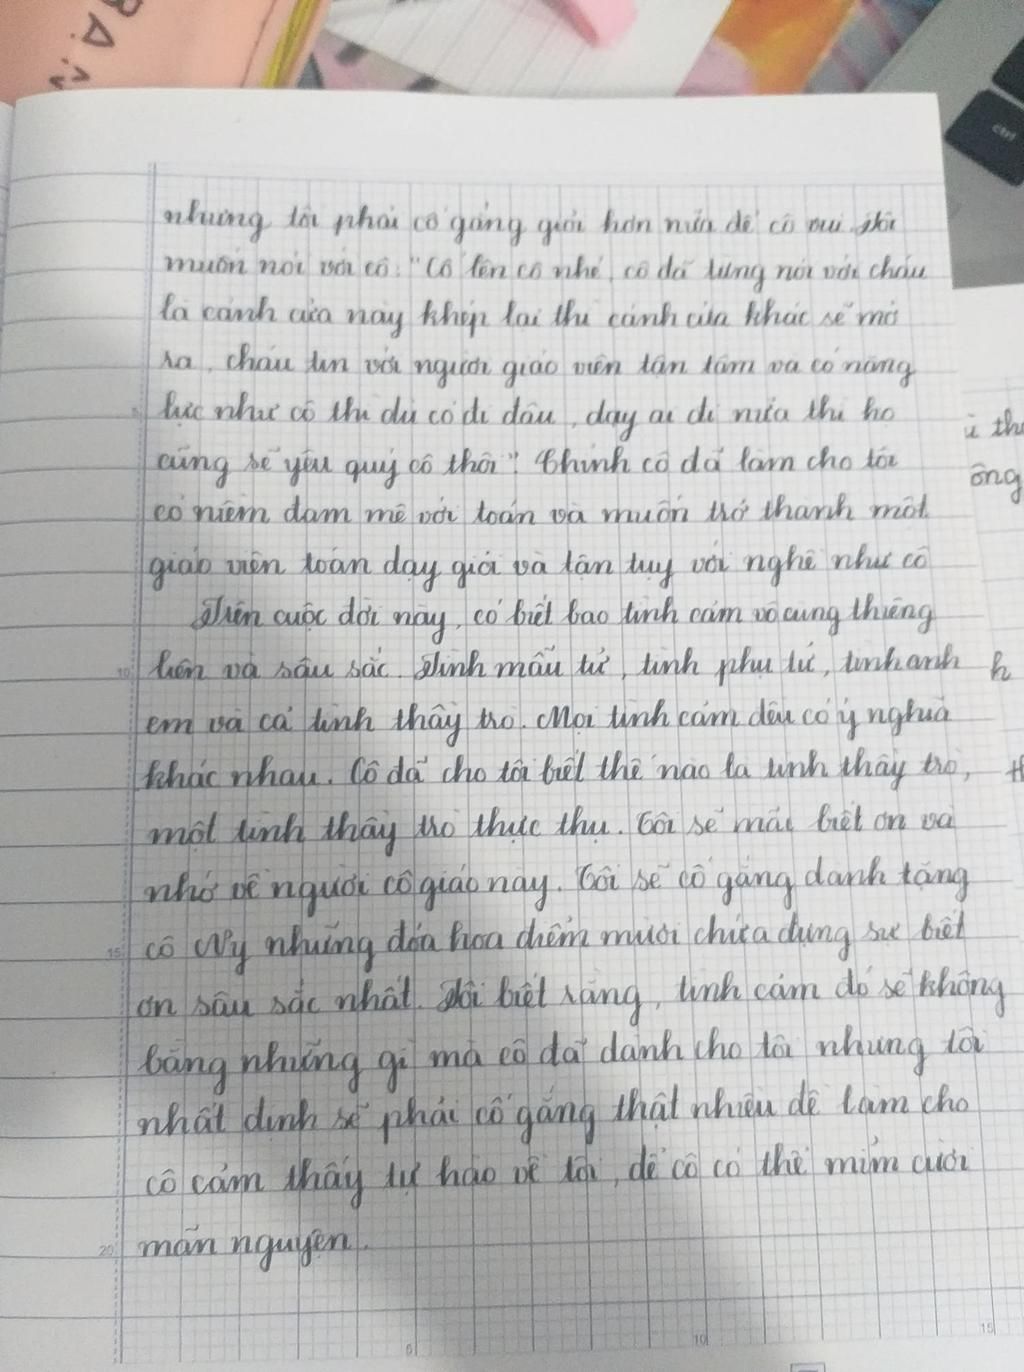 nhưng tôi phải cố gắng giỏi hơn nữa để cô vui. Tôi
muốn nói với cô: "Cố lên cô nhé, cô đã từng nói với cháu
là cánh cửa này khép lại thì cánh cửa khác sẽ mở
ra, cháu tin với người giáo viên tận tâm và có năng
lực như cô thì dù có đi đâu, dạy ai đi nữa thì họ
cũng sẽ yêu quý cô thôi". Chính cô đã làm cho tôi
có niềm đam mê với toán và muốn trở thành một
giáo viên toán dạy giỏi và tận tụy với nghề như cô
Trên cuộc đời này, có biết bao tình cảm vô cùng thiêng
liên và sâu sắc. Tình mẫu tử, tình phụ tử, tình anh
em và cả tình thầy trò. Mọi tình cảm đều có ý nghĩa
khác nhau. Cô đã cho tôi biết thế nào là tình thầy trò,
một tình thầy trò thực thụ. Tôi sẽ mãi biết ơn và
nhớ về người cô giáo này. Tôi sẽ cố gắng dành tặng
cô Vy những đóa hoa điểm mười chứa đựng sự biết
ơn sâu sắc nhất. Tôi biết rằng, tình cảm đó sẽ không
bằng những gì mà cô đã dành cho tôi nhưng tôi
nhất định sẽ phải cố gắng thật nhiều để làm cho
cô cảm thấy tự hào về tôi, để cô có thể mỉm cười
mãn nguyện.
ông
ctrl
5
10
15
20